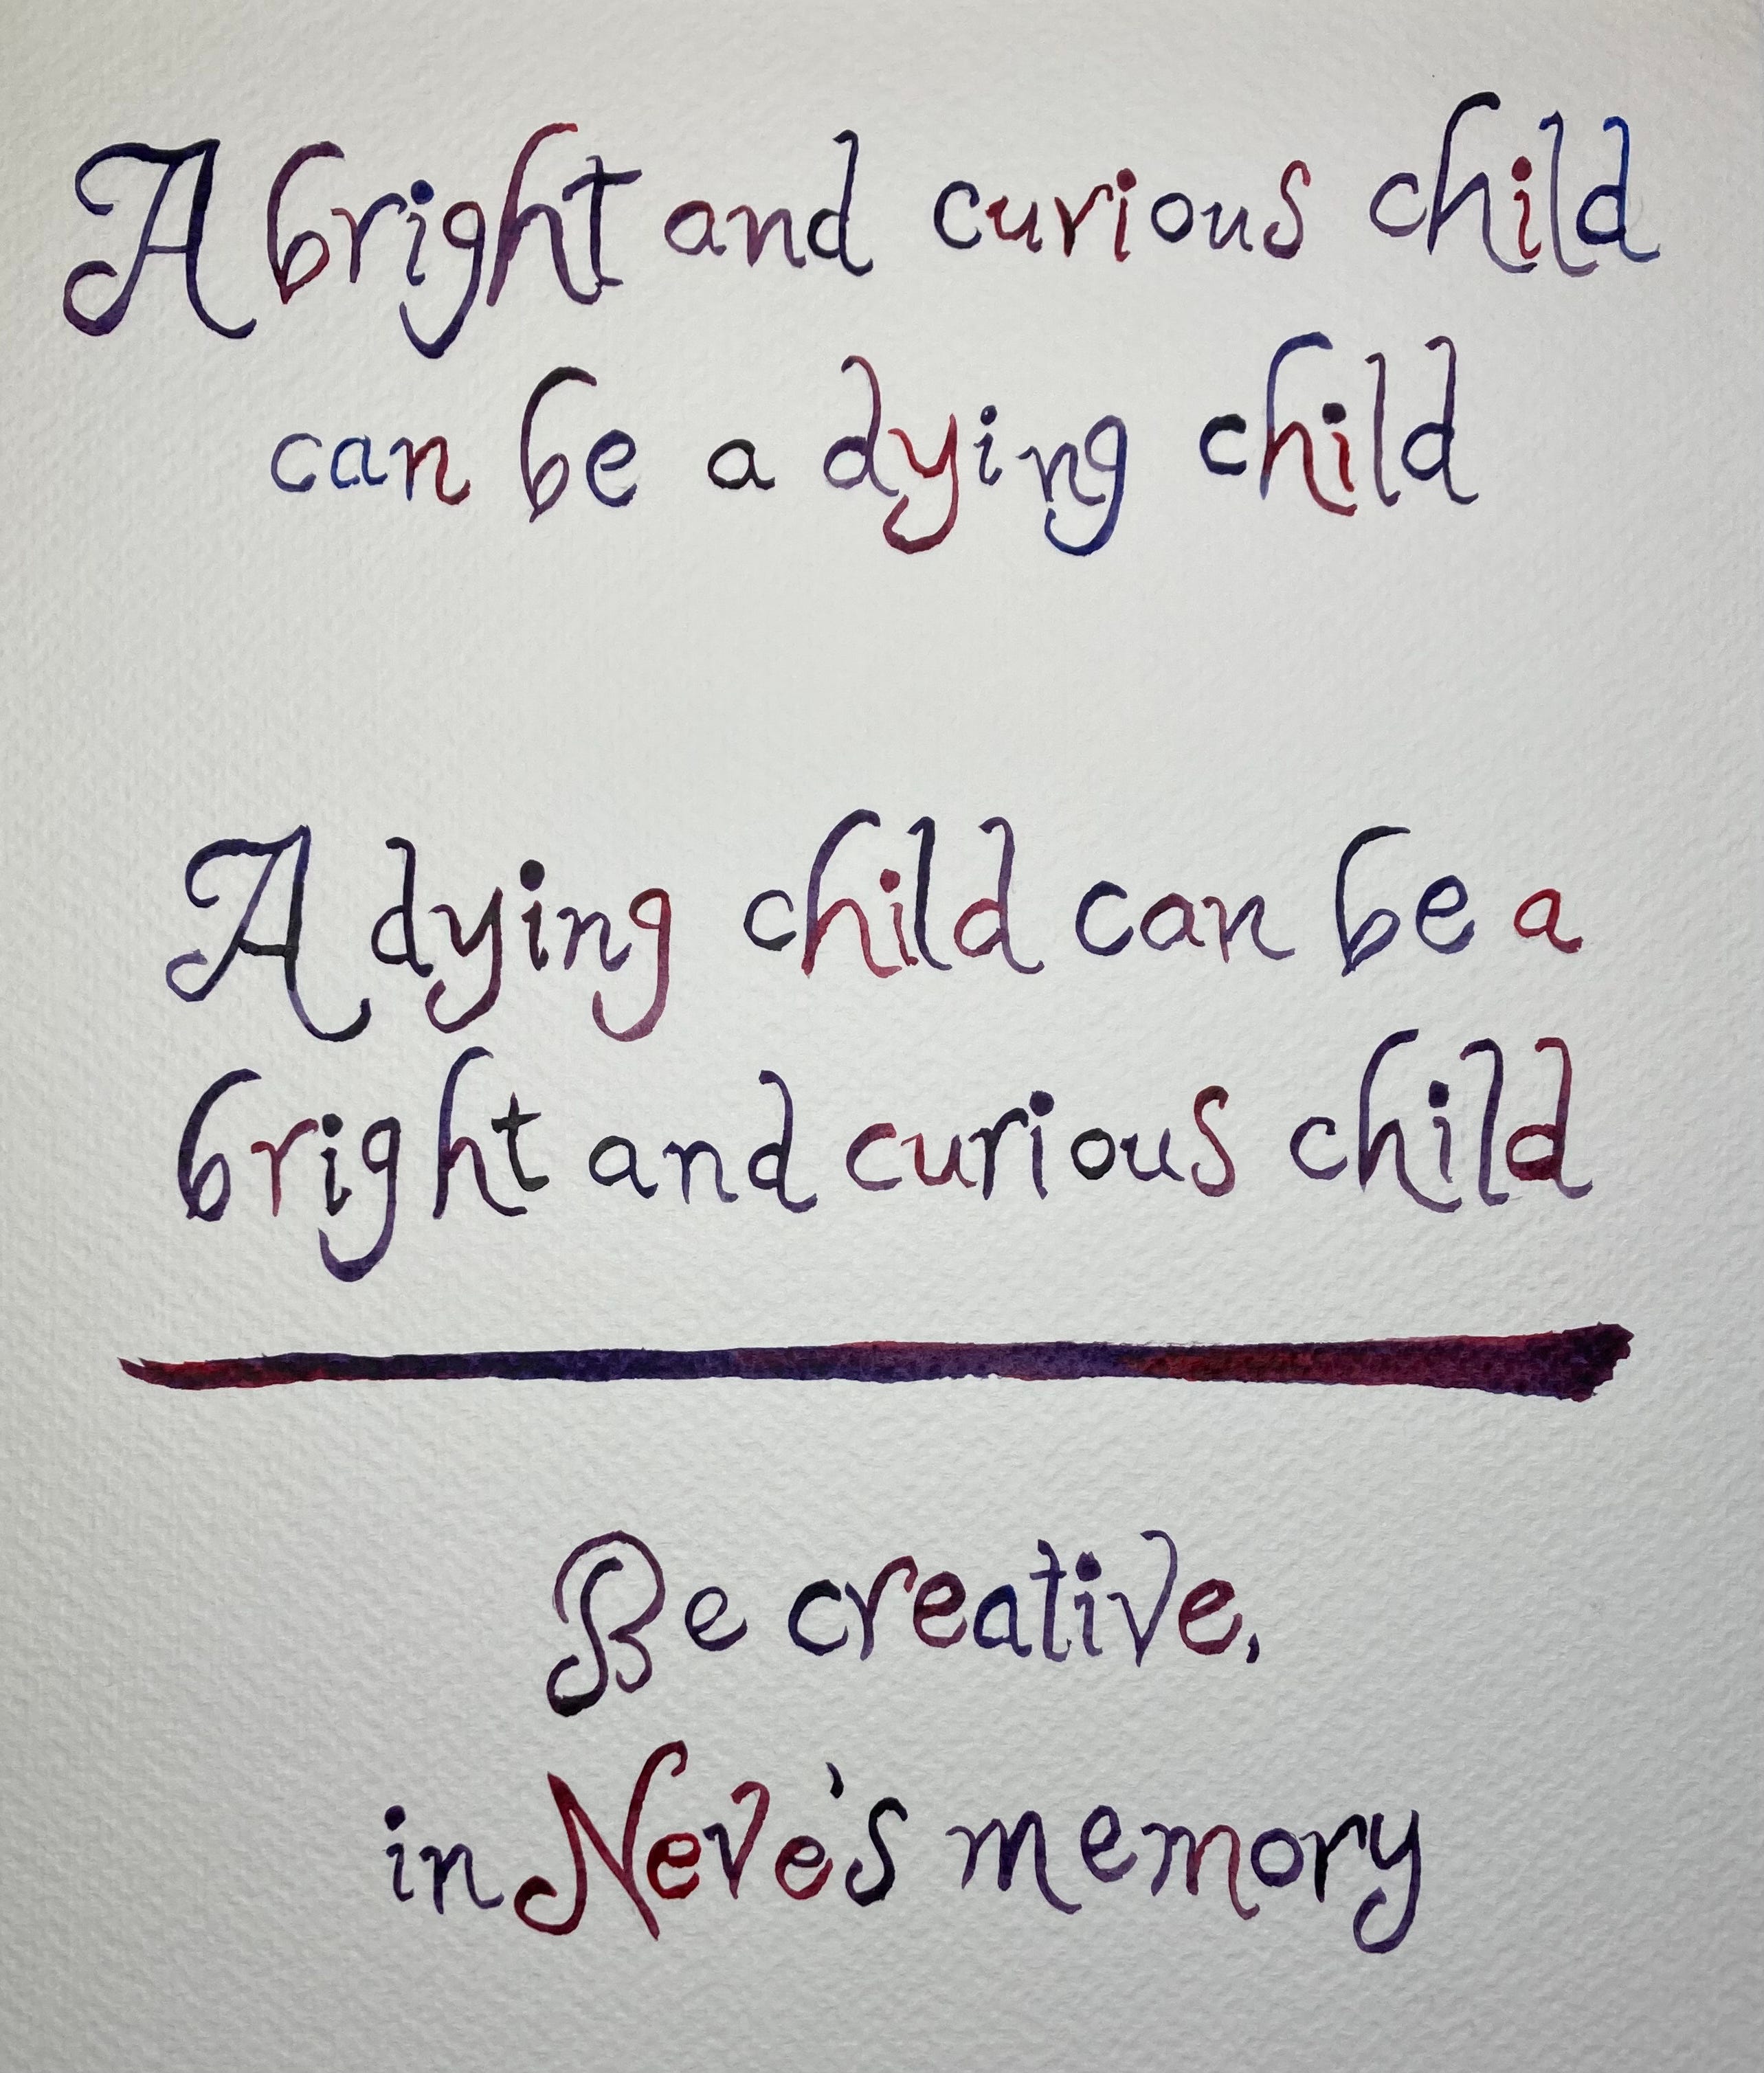 A bright and curious child
can be a dying child
A dying child can be a
bright and curious child
Be creative,
in Neve's memory